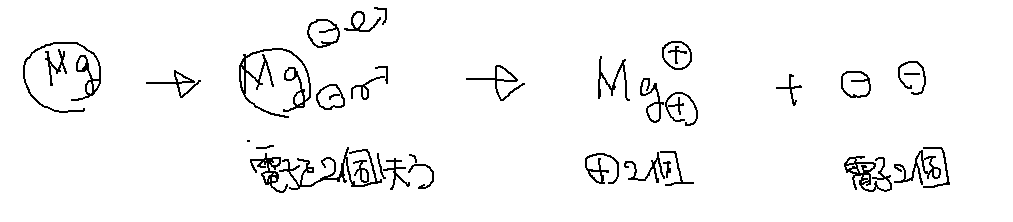 Mg → Mg ⊖ ⊖ → Mg ⊕ ⊕ + ⊖ ⊖
電子を2個失う ⊕2個 電子2個